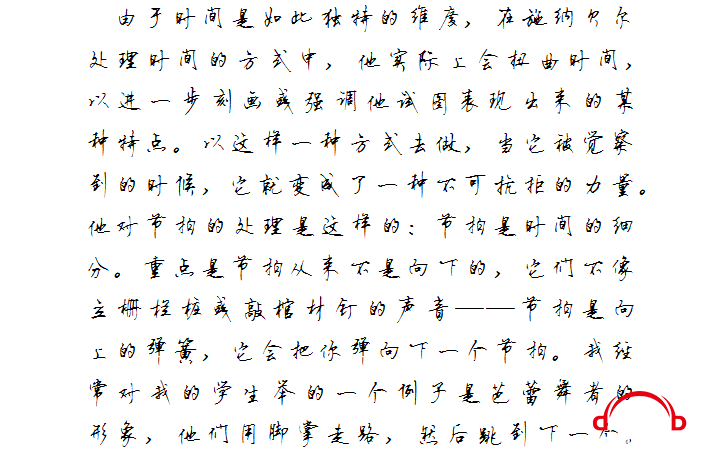 由于时间是如此独特的维度，在施纳贝尔
处理时间的方式中，他实际上会扭曲时间，
以进一步刻画或强调他试图表现出来的某
种特点。以这样一种方式去做，当它被觉察
到的时候，它就变成了一种不可抗拒的力量。
他对节拍的处理是这样的：节拍是时间的细
分。重点是节拍从来不是向下的，它们不像
立栅栏桩或敲棺材钉的声音——节拍是向
上的弹簧，它会把你弹向下一个节拍。我经
常对我的学生举的一个例子是芭蕾舞者的
形象，他们用脚掌走路，然后跳到下一个。